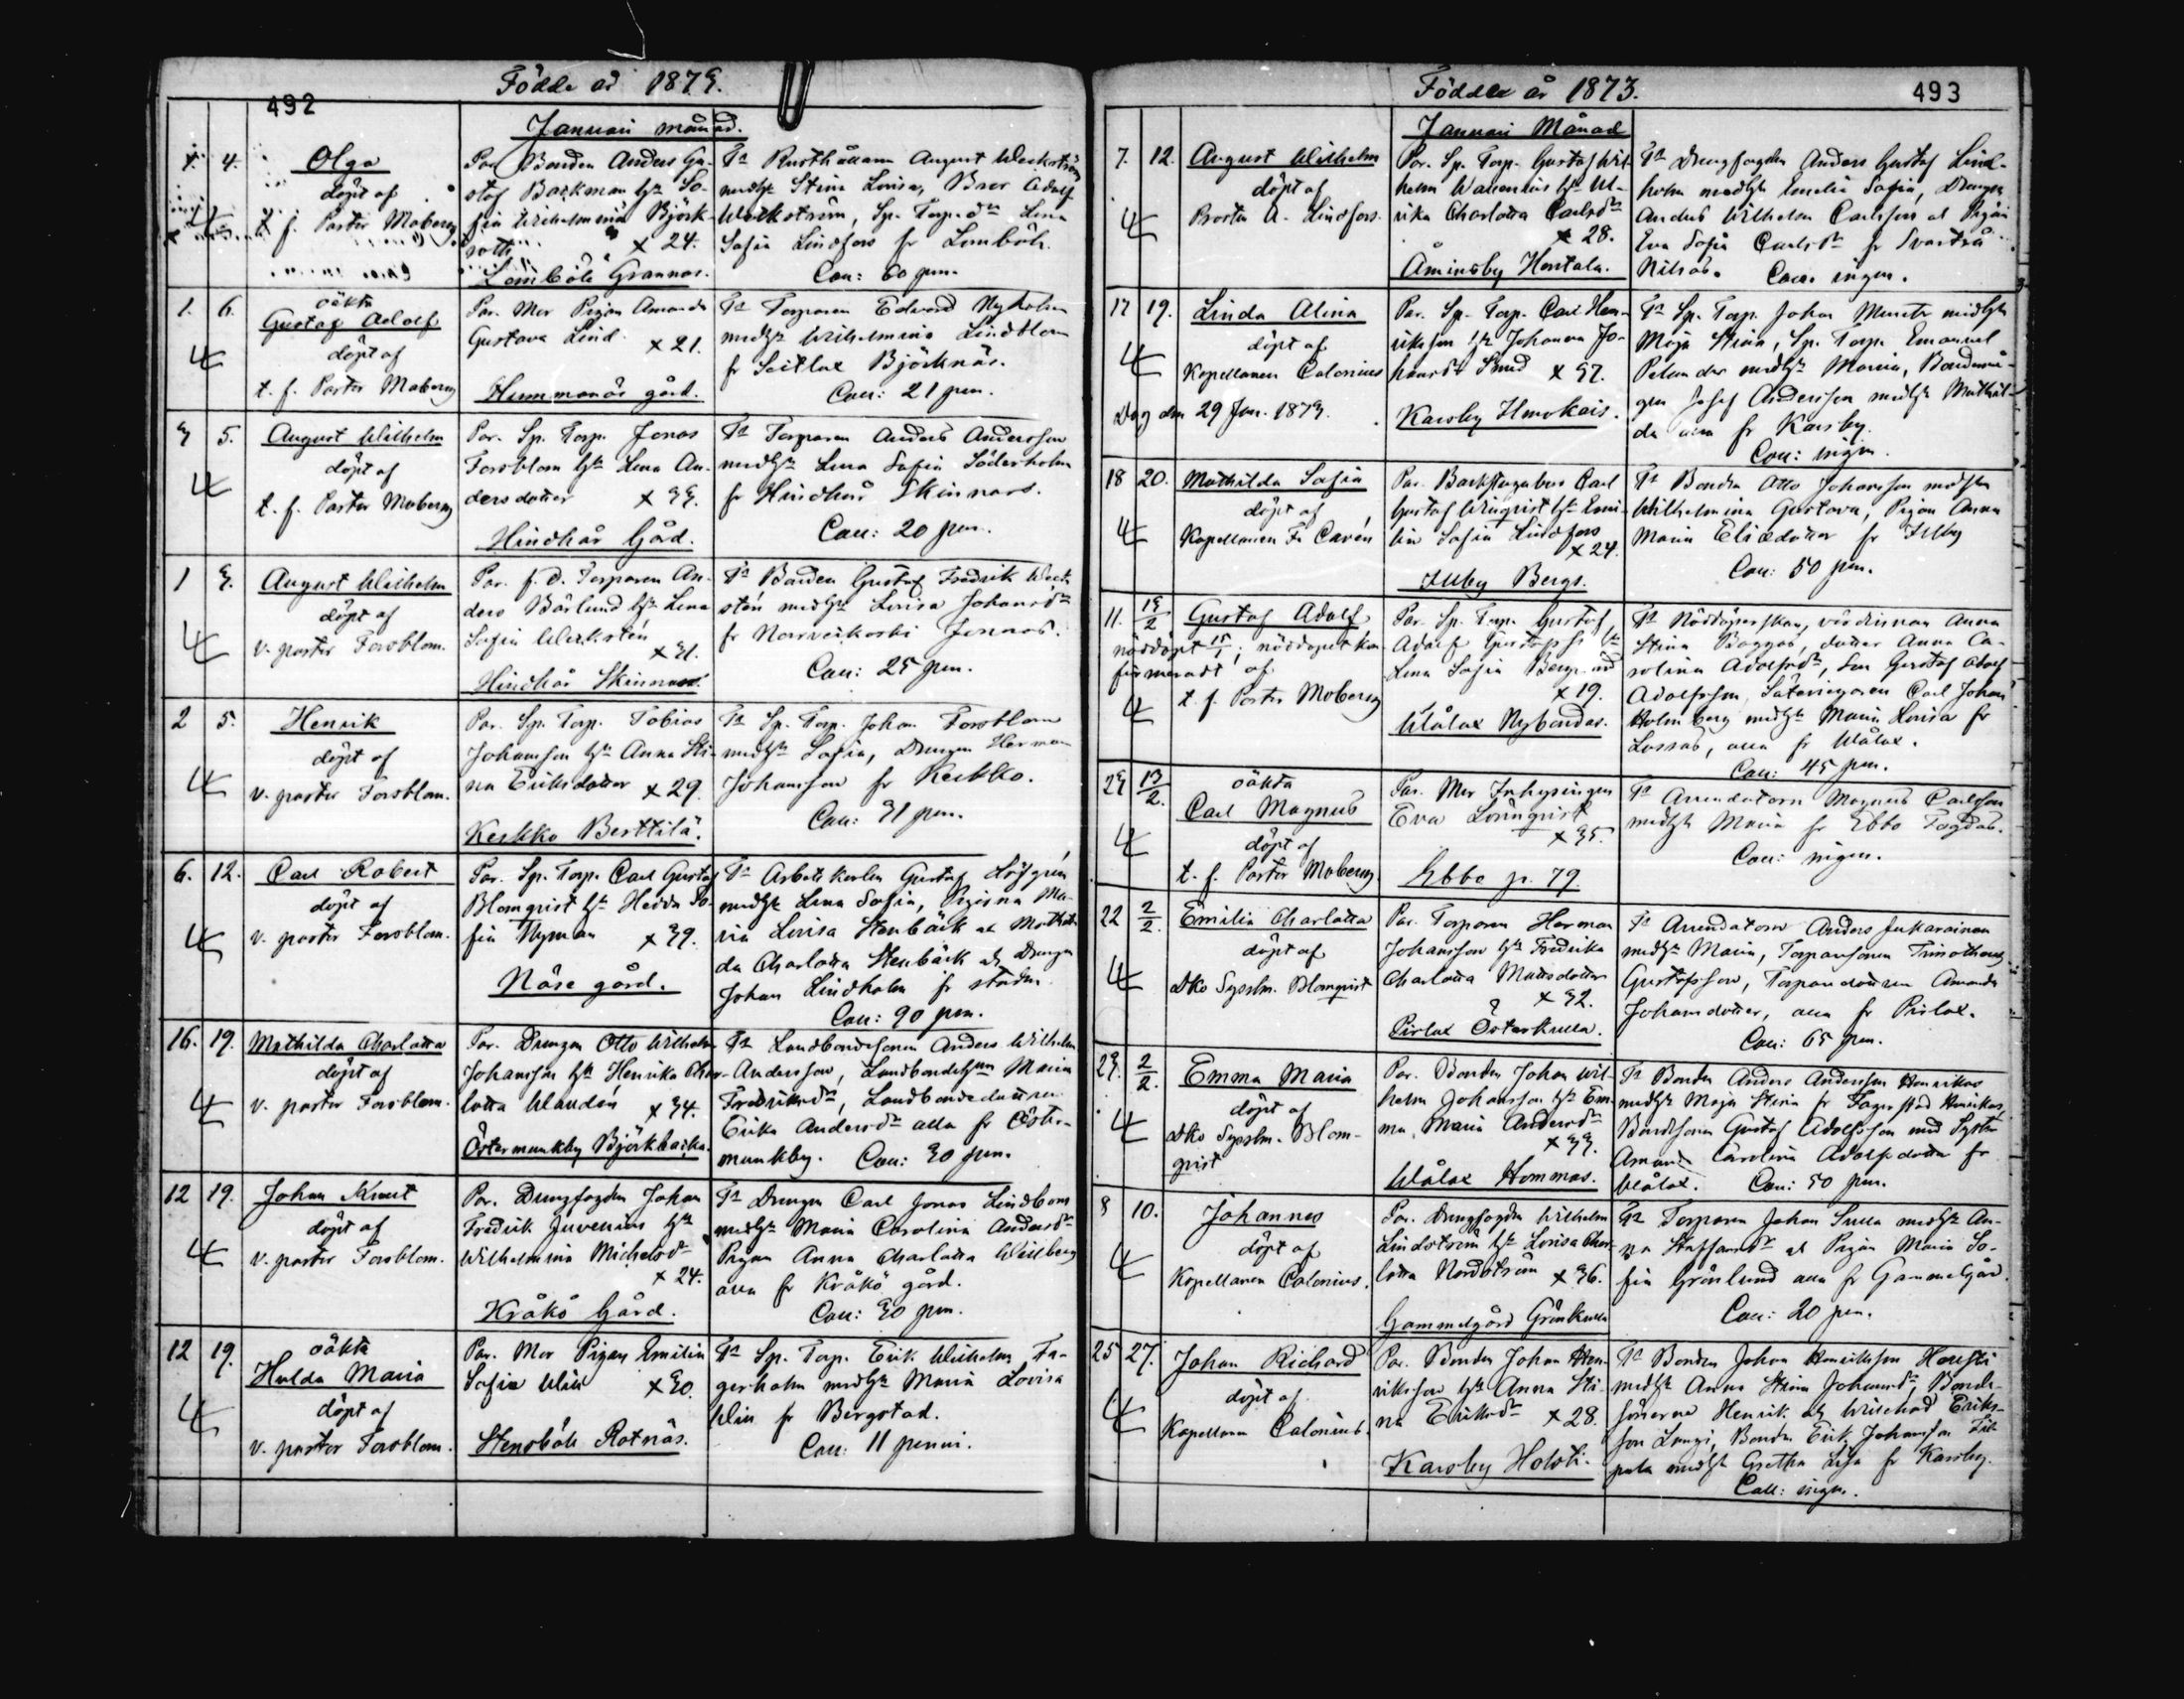 492
Födde år 1873.
Januari månad.
1. 4.
Olga
döpt af
t. f. Pastor Moberg
Par. Bonden Anders Gu-
staf Backman h:u So-
fia Wilhelmina Björk-
× 24.
Lomböle Grannas.
T:n Rusthållaren August Weckström
med h:u Stina Lovisa, Bror Adolf
Weckström, Sp. Torp. d:r Lena
Sofia Lindfors fr Lomböle.
Coll: 60 pen.
1. 6.
oäkta
Gustaf Adolf
döpt af
t. f. Pastor Moberg
Par. Mor Pigan Amanda
Gustava Lind. × 21.
Hummanäs gård.
T:n Torparen Edvard Nyholm
med h:u Wilhelmina Lindblom
fr Seitlax Björknäs.
Coll: 21 pen.
3 5.
August Wilhelm
döpt af
t. f. Pastor Moberg
Par. Sp. Torp. Jonas
Forsblom h:u Lena An-
dersdotter × 33.
Hindhår Gård.
T:n Torparen Anders Andersson
med h:u Lena Sofia Söderholm
fr Hindhår Skinnars.
Coll: 20 pen.
1 3.
August Wilhelm
döpt af
v. pastor Forsblom.
Par. f. d. Torparen An-
ders Bärlund h:u Lena
Sofia Weckstén
× 31.
Hindhår Skinnars.
T:n Bonden Gustaf Fredrik Weck-
stén med h:u Lovisa Johansd:r
fr Norrveckoski Jonnas.
Coll: 25 pen.
2 5.
Henrik
döpt af
v. pastor Forsblom.
Par. Sp. Torp. Tobias
Johansson h:u Anna Sti-
na Eriksdotter × 29.
Kerkko Berttilä.
T:n Sp. Torp. Johan Forsblom
med h:u Sofia, Drengen Herman
Johansson fr Kerkko.
Coll: 31 pen.
6. 12.
Carl Robert
döpt af
v. pastor Forsblom.
Par. Sp. Torp. Carl Gustaf
Blomqvist h:u Hedda So-
fia Nyman × 39.
Näse gård.
T:n Arbetskarlen Gustaf Löfgrén
med h:u Lena Sofia, Pigorna Ma-
ria Lovisa Stenbäck et Mathil-
da Charlotta Stenbäck et Drengen
Johan Lindholm fr staden.
Coll: 90 pen.
16. 19.
Mathilda Charlotta
döpt af
v. pastor Forsblom.
Par. Drengen Otto Wilhelm
Johansson h:u Henrika Char-
lotta Wandén × 34.
Östermunkby Björkbacka.
T:n Landbondesonen Anders Wilhelm
Andersson, Maria
Fredriksd:r, Landbondedottren
Erika Andersd:r alla fr Öster-
munkby. Coll: 30 pen.
12 19.
Johan Knut
döpt af
v. pastor Forsblom.
Par. Drengfogden Johan
Fredrik Juvenius h:u
Wilhelmina Michelsd:r
× 24.
Kråkö Gård.
T:n Drengen Carl Jonas Lindbom
med h:u Maria Carolina Andersd:r
Pigan Anna Charlotta Willberg
alla fr Kråkö gård.
Coll: 30 pen.
12 19.
oäkta
Hulda Maria
döpt af
v. pastor Forsblom.
Par. Mor Pigan Emilia
Sofia × 30.
Stensböle Rotnäs.
T:n Sp. Torp. Erik Wilhelm Fa-
gerholm med h:u Maria Lovisa
fr Bergstad.
Coll: 11 penni.
493
Födde år 1873.
Januari Månad
7. 12.
August Wilhelm
döpt af
Prosten A. Lindfors.
Par. Sp. Torp. Gustaf Wil-
helm Wallenius h:u Ul-
rika Charlotta Carlsd:r
× 28.
Åminsby Hentala.
T:n Drengfogden Anders Gustaf Lind-
holm med h:u Emelie Sofia, Drengen
Anders Wilhelm Carlsson et Pigan
Eva Sofia Carlsd:r fr Svartså
Nilsas. Coll: ingen.
17 19.
Linda Alina
döpt af
Kapellanen Calonius
Dag den 29 Jan. 1873.
Par. Sp. Torp. Carl Hen-
riksson h:u Johanna Jo-
hansd:r Smed × 37.
Karsby Hmokais.
T:n Sp. Torp. Johan Munter med h:u
Maja Stina, Sp. Torp. Emanuel
Pelander med h:u Maria, Bondemå-
gen Josef Andersson med h:u Mathil-
da alla fr Karsby.
Coll: ingen.
18 20.
Mathilda Sofia
döpt af
Kapellanen Fr Cavén
Par. Backstugubon Carl
Gustaf Winqvist h:u Emi-
lia Sofia Lindfors
× 24.
Illby Bergs.
T:n Bonden Otto Johansson med h:u
Wilhelmina Gustava, Pigan Anna
Maria Elisdotter fr Illby
Coll: 50 pen.
11. 13/2
Gustaf Adolf
nöddöpt 15/1; nöddopet kon-
firmeradt af
t. f. Pastor Moberg
Par. Sp. Torp. Gustaf
Adolf Gustafss: h:u
Lena Sofia
× 19.
Wålax Nybondas.
T:n Nöddöperskan, värdinnan Anna
Stina Baggas, dotter Anna Ca-
rolina Adolfsd:r, Son Gustaf Adolf
Adolfsson, Carl Johan
Holmberg med h:u Maria Lovisa fr
Lassas, alla fr Wålax.
Coll: 45 pen.
23 13/2.
oäkta
Carl Magnus
döpt af
t. f. Pastor Moberg.
Par. Mor Inhysingen
Eva Lönnqvist
× 35.
Ebbo p. 79.
T:n Arrendatorn Magnus Carlsson
med h:u Maria fr Ebbo Fogdas.
Coll: ingen.
22 2/2.
Emilia Charlotta
döpt af
Dko Syssln. Blomqvist
Par. Torparen Herman
Johansson h:u Fredrika
Charlotta Mattsdotter
× 32.
Pirlax Österkulla.
T:n Arrendatorn Anders Jukarainen
med h:u Maria, Torparsonen Timotheus
Gustafsson, Torparedottren Amanda
Johansdotter, alla fr Pirlax.
Coll: 65 pen.
23. 2/2.
Emma Maria
döpt af
Dko Syssln. Blom-
qvist
Par. Bonden Johan Wil-
helm Johansson h:u Em-
ma Maria Andersd:r
× 33.
Wålax Hommas.
T:n Bonden Anders Andersson Henrikas
med h:u Maja Stina fr Fagerstad Henrikas,
Bondsonen Gustaf Adolfsson med Syster
Amanda Carolina Adolfsdotter fr
Wålax. Coll: 50 pen.
8 10.
Johannes
döpt af
Kapellanen Calonius.
Par. Drengfogden Wilhelm
Lindström h:u Lovisa Char-
lotta Nordström × 36.
Gammelgård Grönkulla
T:n Torparen Johan Sulla med h:u An-
na Staffansd:r et Pigan Maria So-
fia Grönlund alla fr Gammelgård.
Coll: 20 pen.
25 27.
Johan Richard
döpt af
Kapellanen Calonius.
Par. Bonden Johan Hen-
riksson h:u Anna Sti-
na Eriksd:r × 28.
Karsby Holsti.
T:n Bonden Johan Henriksson Housti
med h:u Anna Stina Johansd:r, Bonde-
sönerne Henrik et Wilehad Eriks-
son Bonden Erik Johansson
med h:u Gretha Lisa fr Karsby.
Coll: ingen.